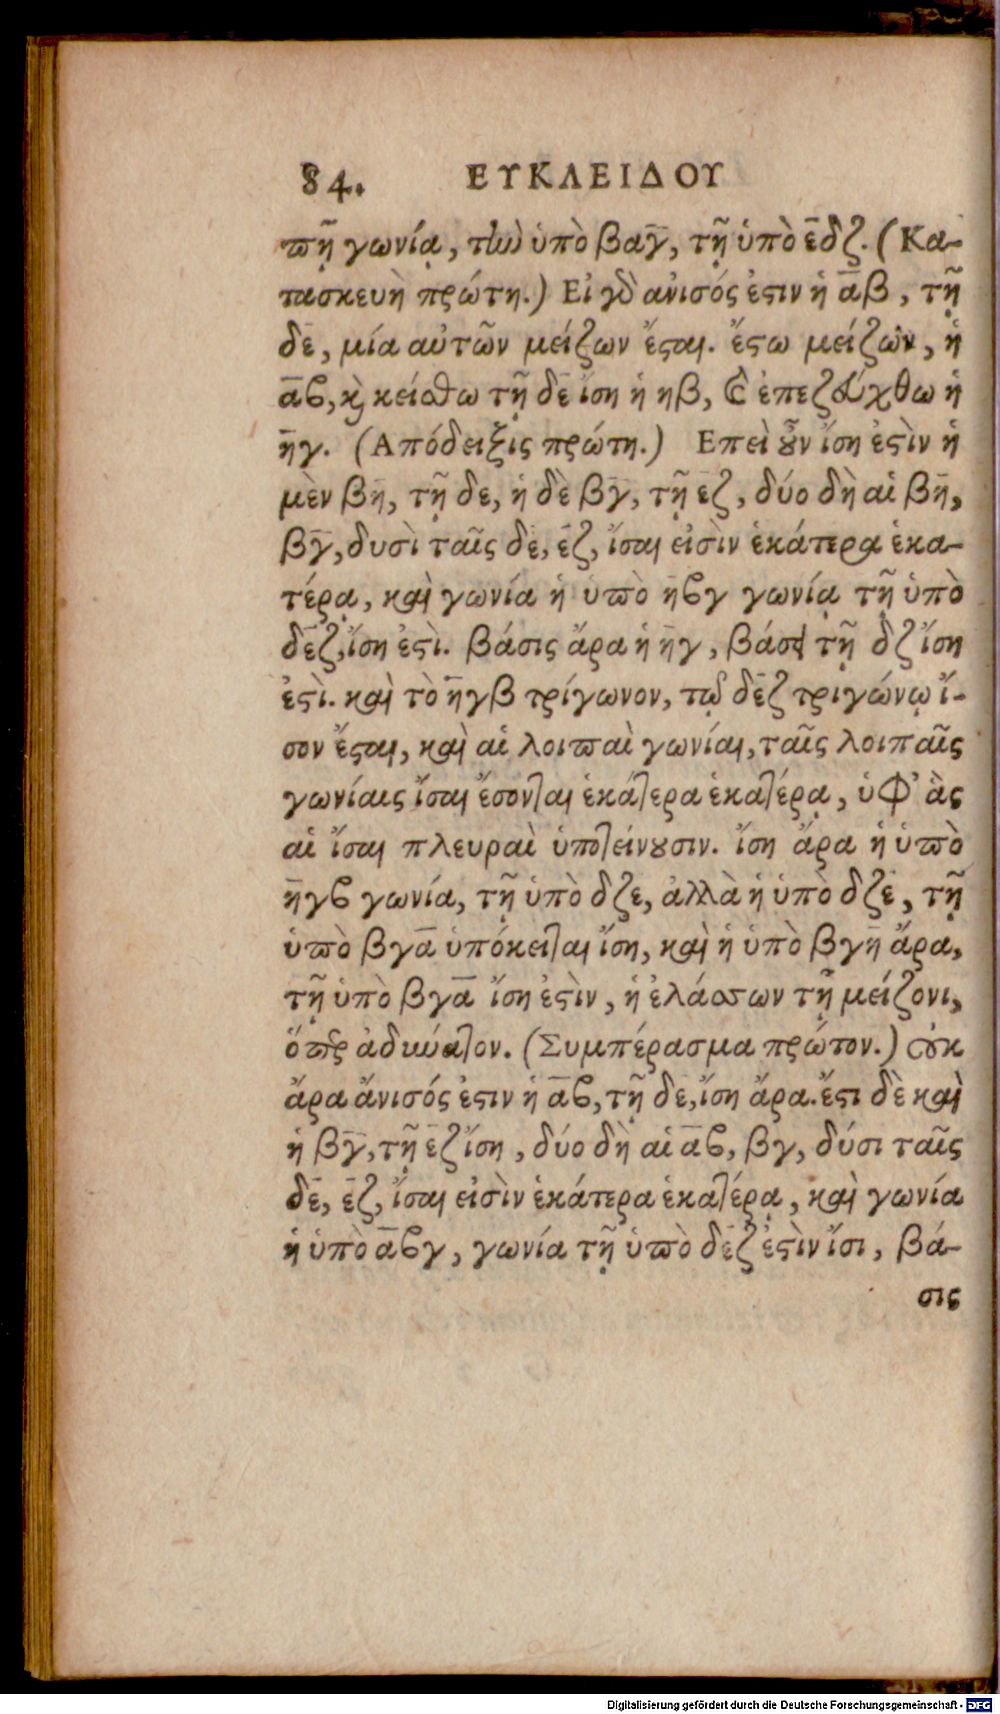 84. ΕΥΚΛΕΙΔΟΥ
πῇ γωνίᾳ, τὴν ὑπὸ βαγ̅, τῇ ὑπὸ ε̅δζ. (Κα-
τασκευὴ πρώτη.) Εἰ γὸ ανισός ἐϛιν ἡ α̅β, τῇ
δε̅, μία αὐτῶν μείζων ἔϛαι. ἔϛω μείζων, ἡ
α̅ϐ, κ̀ κείσθω τῇ δε̅ ἴση ἡ ηβ, κὶ ἐπεζεύχθω ἡ
η̅γ. (Απόδειξις πρώτη.) Επεὶ ȣ̓͂ν ἴση ἐϛὶν ἡ
μὲν βη̅, τῇ δε, ἡ δὲ βγ̅, τῇ ε̅ζ, δύο δὴ αἱ βη̅,
βγ̅, δυσὶ ταῖς δε̅, ε̅ζ, ἴσαι εἰσὶν ἑκάτερα ἑκα-
τέρᾳ, καὶ γωνία ἡ ὑπὸ η̅ϐγ γωνίᾳ τῇ ὑπὸ
δε̅ζ, ἴση ἐϛὶ. βάσις ἄρα ἡ η̅γ, βάσει τῇ δζ ἴση
ἐϛὶ. καὶ τὸ η̅γβ τρίγωνον, τῷ δε̅ζ τριγώνῳ ἴ-
σον ἔϛαι, καὶ αἱ λοιπαὶ γωνίαι, ταῖς λοιπαῖς
γωνίαις ἴσαι ἔσονται ἑκάτερα ἑκατέρᾳ, ὑφ' ἃς
αἱ ἴσαι πλευραὶ ὑποτείνȣσιν. ἴση ἄρα ἡ ὑπὸ
η̅γϐ γωνία, τῇ ὑπὸ δζε, ἀλλὰ ἡ ὑπὸ δζε̅, τῇ
ὑπὸ βγα̅ ὑπόκειται ἴση, καὶ ἡ ὑπὸ βγη̅ ἄρα,
τῇ ὑπὸ βγα̅ ἴση ἐϛὶν, ἡ ἐλάσσων τῇ μείζονι,
ὅπερ ἀδύνατον. (Συμπέρασμα πρῶτον.) οὐκ
ἄρα ἄνισός ἐϛιν ἡ α̅ϐ, τῇ δε̅, ἴση ἄρα. ἔϛι δὲ καὶ
ἡ βγ̅, τῇ ε̅ζ ἴση, δύο δὴ αἱ α̅ϐ, βγ, δύσι ταῖς
δε̅, ε̅ζ, ἴσαι εἰσὶν ἑκάτερα ἑκατέρᾳ, καὶ γωνία
ἡ ὑπὸ α̅ϐγ, γωνία τῇ ὑπὸ δε̅ζ ἐϛὶν ἴσι, βά-
σις
Digitalisierung gefördert durch die Deutsche Forschungsgemeinschaft - DFG